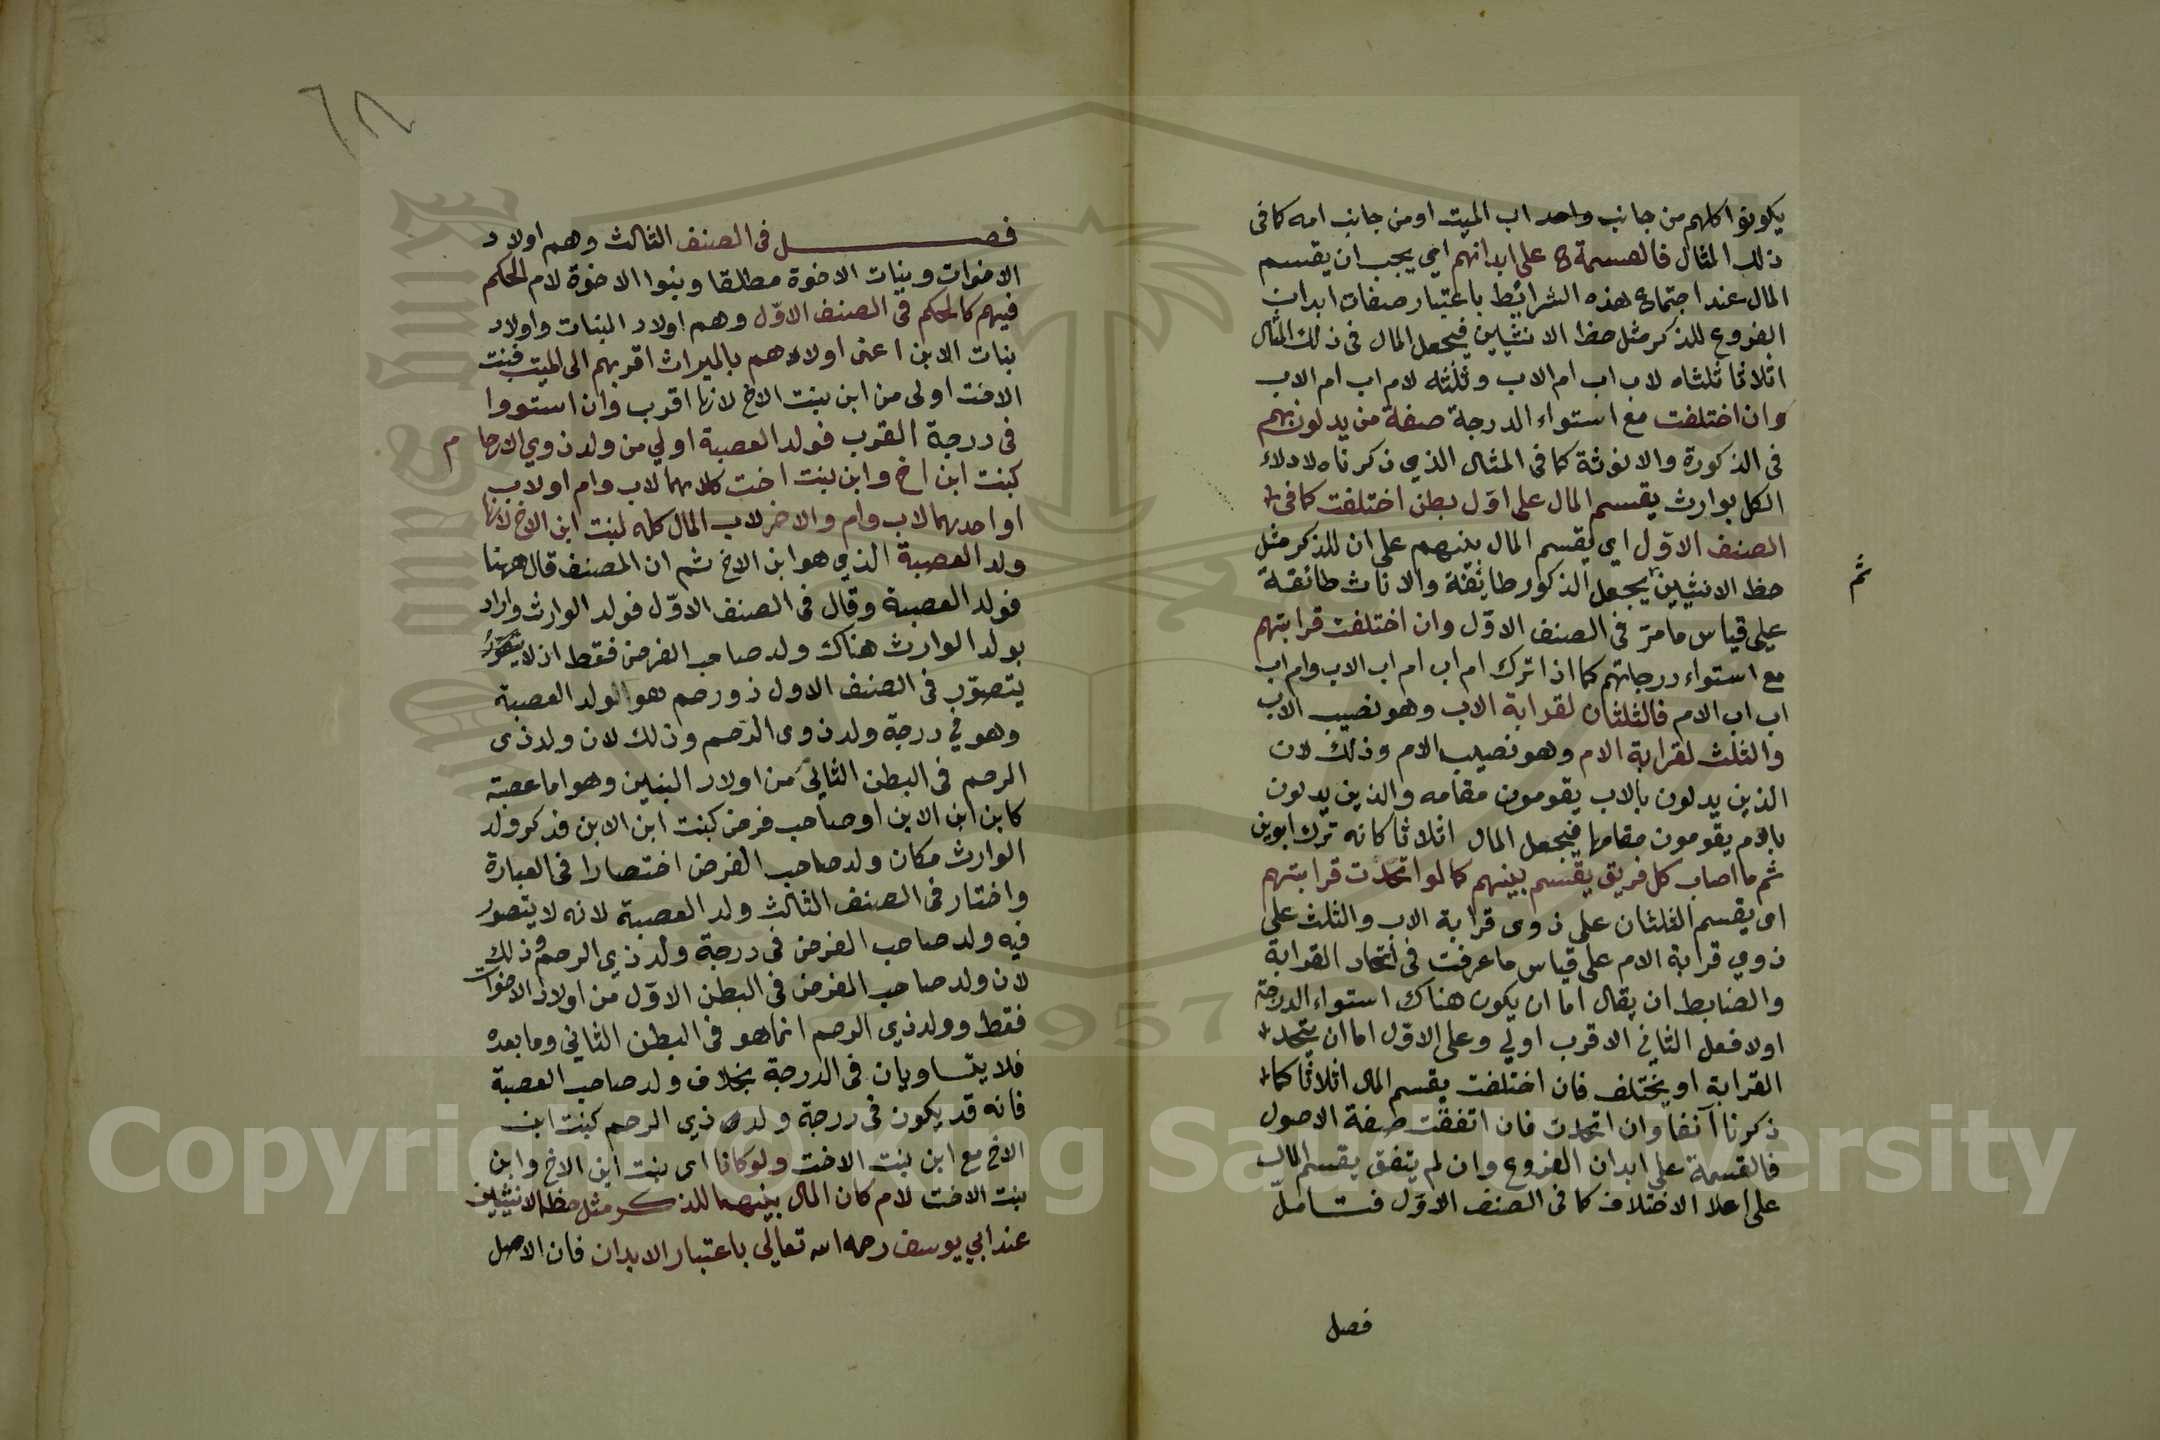 يكونوا كلهم من جانب واحد اب الميت او من جانب امه كما في
ذلك المثال فالقسمة ح على ابدانهم اي يجب ان يقسم
المال عند اجتماع هذه الشرائط باعتبار صفات ابدان
الفروع للذكر مثل حظ الانثيين فيجعل المال في ذلك المثال
اثلاثا ثلثاه لاب اب ام الاب وثلثه لام اب ام الاب
وان اختلفت مع استواء الدرجة صفة من يدلون بهم
في الذكورة والانوثة كما في المثال الذي ذكرناه لادلاء
الكل بوارث يقسم المال على اول بطن اختلفت كما في
الصنف الاول اي يقسم المال بينهم على ان للذكر مثل
حظ الانثيين يجعل الذكور طائفة والاناث طائفة
ثم
على قياس ما مر في الصنف الاول وان اختلفت قرابتهم
مع استواء درجاتهم كما اذا ترك ام اب ام اب الاب وام اب
اب اب الام فالثلثان لقرابة الاب وهو نصيب الاب
والثلث لقرابة الام وهو نصيب الام وذلك لان
الذين يدلون بالاب يقومون مقامه والذين يدلون
بالام يقومون مقامها فيجعل المال اثلاثا كانه ترك ابوين
ثم ما اصاب كل فريق يقسم بينهم كما لو اتحدت قرابتهم
اى يقسم الثلثان على ذوى قرابة الاب والثلث على
ذوي قرابة الام على قياس ما عرفت في اتحاد القرابة
والضابط ان يقال اما ان يكون هناك استواء الدرجة
اولا فعل الثاني الاقرب اولي وعلى الاول اما ان يتحد
القرابة او يختلف فان اختلفت يقسم المال اثلاثا كما
ذكرنا آنفا وان اتحدت فان اتفقت صفة الاصول
فالقسمة على ابدان الفروع وان لم يتفق يقسم المال
على اعلا الاختلاف كما في الصنف الاول فتامل
فصل
٦٨
فصل في الصنف الثالث وهم اولاد
الاخوات وبنات الاخوة مطلقا وبنوا الاخوة لام الحكم
فيهم كالحكم في الصنف الاول وهم اولاد البنات واولاد
بنات الابن اعنى اولاهم بالميراث اقربهم الى الميت فبنت
الاخت اولى من ابن بنت الاخ لانها اقرب وان استووا
في درجة القرب فولد العصبة اولي من ولد ذوي الارحام
كبنت ابن اخ وابن بنت اخت كلاهما لاب وام او لاب
او احدهما لاب وام والاخر لاب المال كله لبنت ابن الاخ لانها
ولد العصبة الذي هو ابن الاخ ثم ان المصنف قال ههنا
فولد العصبة وقال في الصنف الاول فولد الوارث واراد
بولد الوارث هناك ولد صاحب الفرض فقط اذ لا يتصور
يتصور في الصنف الاول ذو رحم هو الولد العصبة
وهو في درجة ولد ذوى الرحم وذلك لان ولد ذى
الرحم في البطن الثالث من اولاد البنين وهو اما عصبة
كابن ابن الابن او صاحب فرض كبنت ابن الابن فذكر ولد
الوارث مكان ولد صاحب الفرض اختصارا في العبارة
واختار في الصنف الثالث ولد العصبة لانه لا يتصور
فيه ولد صاحب الفرض في درجة ولد ذي الرحم وذلك
لان ولد صاحب الفرض في البطن الاول من اولاد الاخوات
فقط وولد ذي الرحم انما هو في البطن الثاني وما بعده
فلا يتساويان في الدرجة بخلاف ولد صاحب العصبة
فانه قد يكون في درجة ولد ذي الرحم كبنت ابن
الاخ مع ابن بنت الاخت ولو كانا اى بنت ابن الاخ وابن
بنت الاخت لام كان المال بينهما للذكر مثل حظ الانثيين
عند ابي يوسف رحمه الله تعالى باعتبار الابدان فان الاصل
Copyright © King Saud University
1957